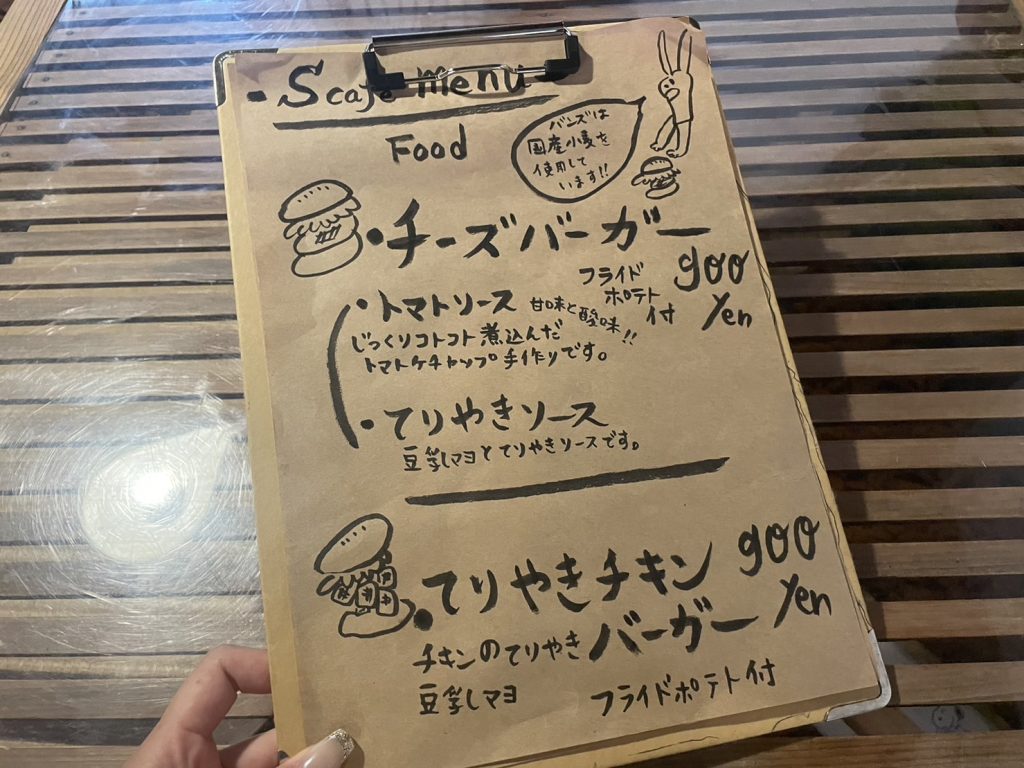 ・S cafe menu
Food
バンズは
国産小麦を
使用して
います!!
・チーズバーガー
900
Yen
フライド
ポテト
付
・トマトソース
甘味と酸味!!
じっくりコトコト煮込んだ
トマトケチャップ手作りです。
・てりやきソース
豆乳マヨとてりやきソースです。
・てりやきチキン
バーガー
900
Yen
チキンのてりやき
豆乳マヨ
フライドポテト付